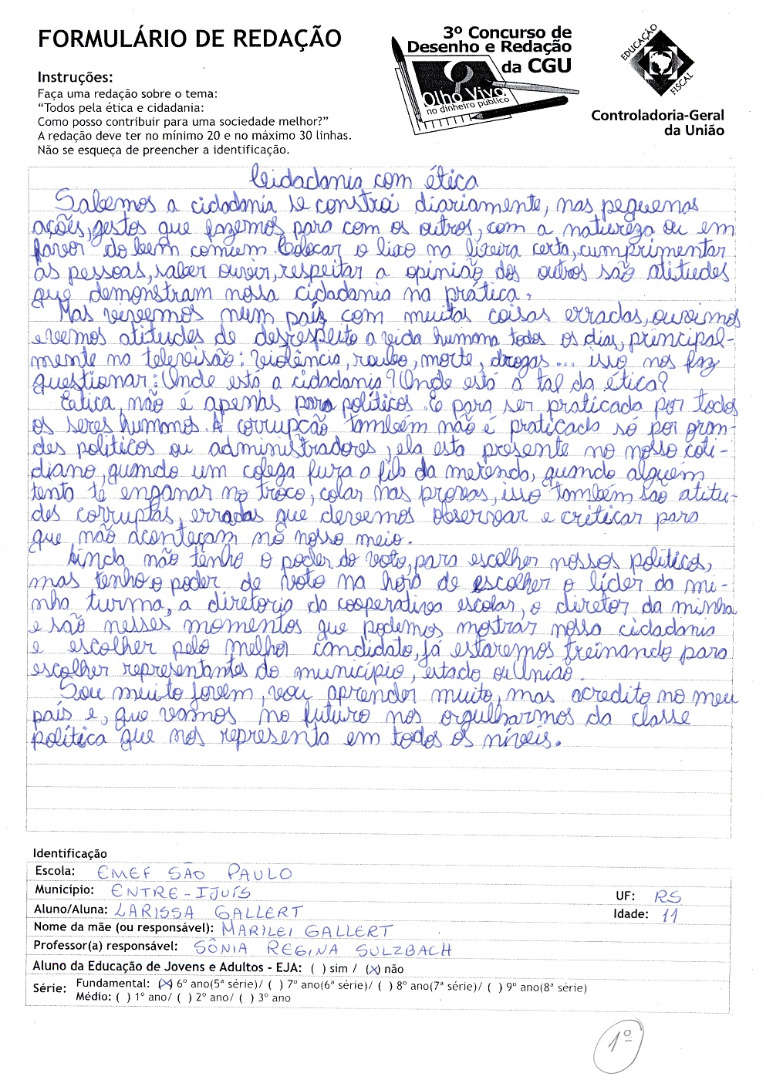 FORMULÁRIO DE REDAÇÃO
3º Concurso de
Desenho e Redação
da CGU
Olho Vivo
no dinheiro público
EDUCAÇÃO
FISCAL
Controladoria-Geral
da União
Instruções:
Faça uma redação sobre o tema:
“Todos pela ética e cidadania:
Como posso contribuir para uma sociedade melhor?”
A redação deve ter no mínimo 20 e no máximo 30 linhas.
Não se esqueça de preencher a identificação.
Cidadania com ética
Sabemos a cidadania se constroi diariamente, nas pequenas
ações, gestos que fazemos para com os outros, com a natureza ou em
favor do bem comum. Colocar o lixo na lixeira certa, cumprimentar
as pessoas, saber ouvir, respeitar a opinião dos outros são atitudes
que demonstram nossa cidadania na prática.
Mas vivemos num país com muitas coisas erradas, ouvimos
e vemos atitudes de desrespeito a vida humana todos os dias, principal-
mente na televisão: violência, roubo, morte, drogas... isso nos faz
questionar: Onde está a cidadania? Onde está a tal da ética?
Ética, não é apenas para políticos. É para ser praticada por todos
os seres humanos. A corrupção também não é praticada só por gran-
des políticos ou administradores, ela esta presente no nosso coti-
diano, quando um colega fura a fila da merenda, quando alguém
tenta te enganar no troco, colar nas provas, isso também são atitu-
des corruptas, erradas que devemos observar e criticar para
que não aconteçam no nosso meio.
Ainda não tenho o poder do voto, para escolher nossos políticos,
mas tenho o poder de voto na hora de escolher o líder da mi-
nha turma, a diretoria da cooperativa escolar, o diretor da minha
e são nesses momentos que podemos mostrar nossa cidadania
e escolher pelo melhor candidato, já estaremos treinando para
escolher representantes do município, estado ou União.
Sou muito jovem, vou aprender muito, mas acredito no meu
país e, que vamos no futuro nos orgulharmos da classe
política que nos representa em todos os níveis.
Identificação
Escola: EMEF SÃO PAULO
Município: ENTRE-IJUÍS UF: RS
Aluno/Aluna: LARISSA GALLERT Idade: 11
Nome da mãe (ou responsável): MARILEI GALLERT
Professor(a) responsável: SÔNIA REGINA SULZBACH
Aluno da Educação de Jovens e Adultos - EJA: ( ) sim / (x) não
Série: Fundamental: (x) 6º ano(5ª série)/ ( ) 7º ano(6ª série)/ ( ) 8º ano(7ª série)/ ( ) 9º ano(8ª série)
Médio: ( ) 1º ano/ ( ) 2º ano/ ( ) 3º ano
1º